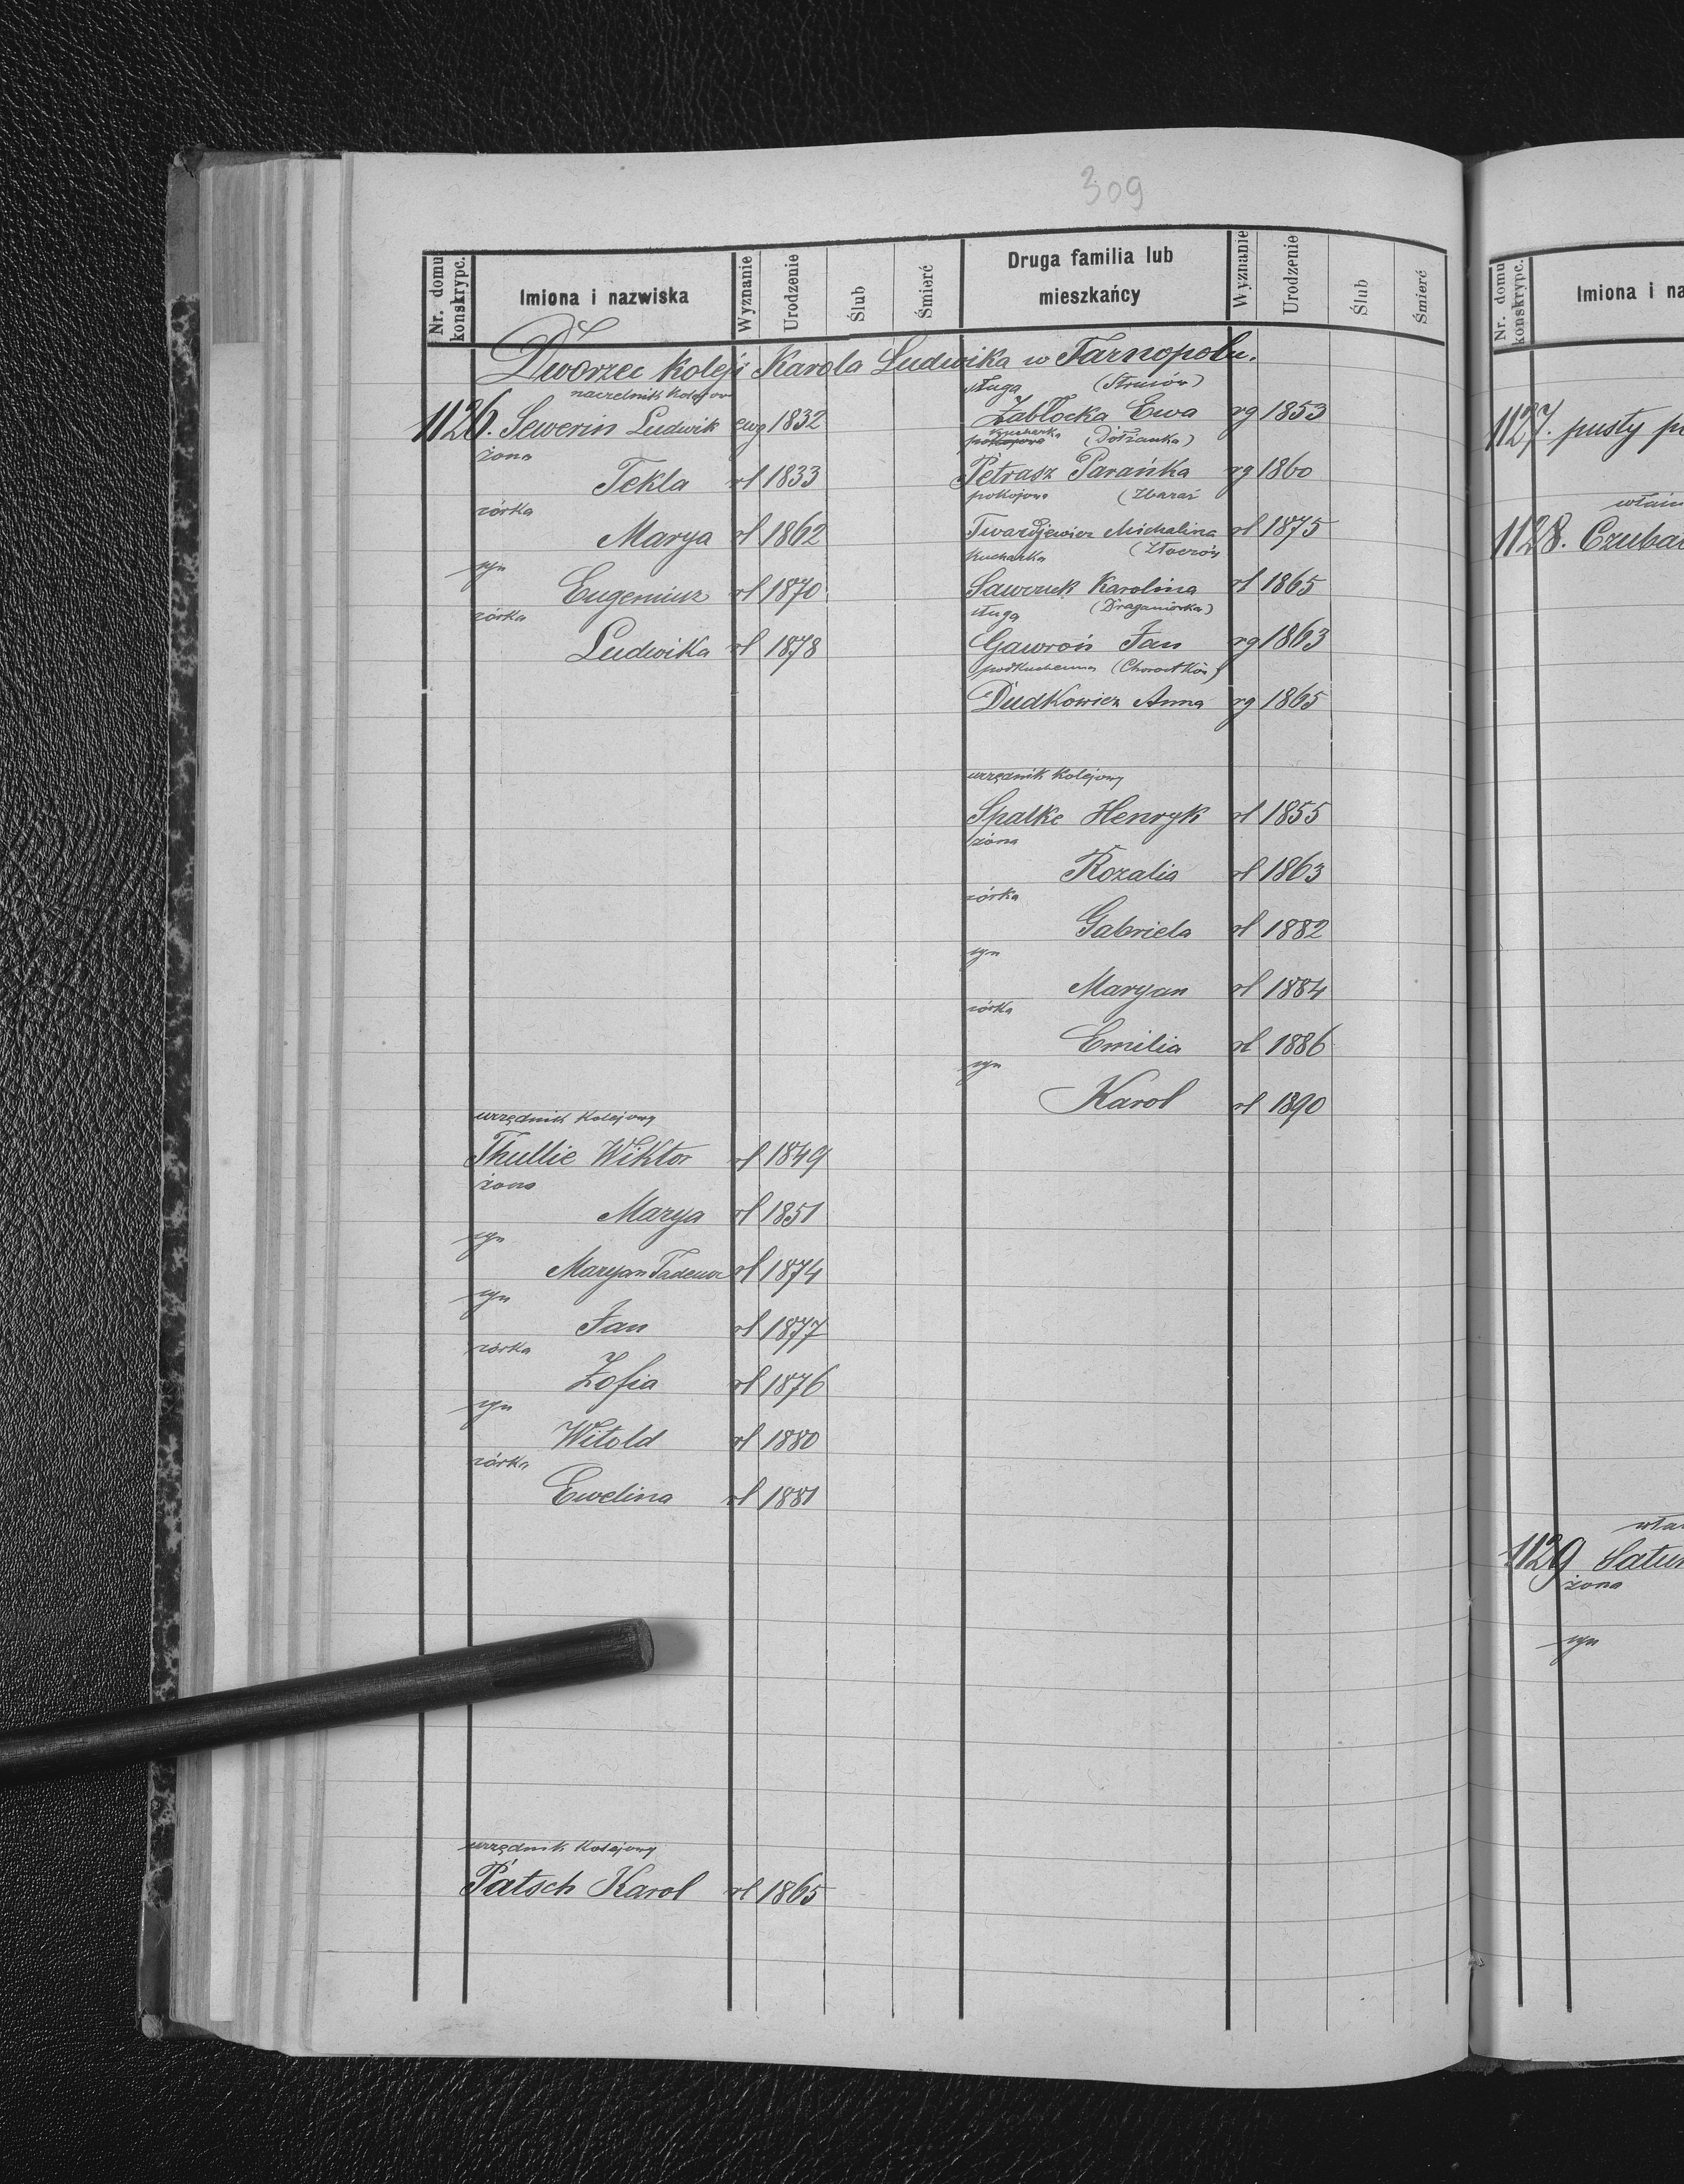 309
Nr. domu konskrypc. Imiona i nazwiska Wyznanie Urodzenie Ślub Śmierć Druga familia lub mieszkańcy Wyznanie Urodzenie Ślub Śmierć
Dworzec kolei Karola Ludwika w Tarnopolu.
naczelnik
1126. Sewerin Ludwik ewg 1832
żona
Tekla rl 1833
córka
Marya rl 1862
syn
Eugeniusz rl 1870
córka
Ludwika rl 1878
urzędnik kolejowy
Thullie Wiktor rl 1849
żona
Marya rl 1851
syn
Maryan Tadeusz rl 1874
syn
Jan rl 1877
córka
Zofia rl 1876
syn
Witold rl 1880
córka
Ewelina rl 1881
urzędnik kolejowy
Patsch Karol rl 1865
sługa (Strusów)
Zabłocka Ewa rg 1853
kucharka pokojowa (Dołżanka)
Petrasz Parańka rg 1860
pokojowa (Zbaraż
Twardjewicz Michalina rl 1875
kucharka (Złoczów
Sawczuk Karolina rl 1865
sługa (Draganówka)
Gawroń Jan rg 1863
podkuchenna (Chorostków)
Dudkowicz Anna rg 1865
urzędnik kolejowy
Spalke Henryk rl 1855
żona
Rozalia rl 1863
córka
Gabriela rl 1882
syn
Maryan rl 1884
córka
Emilia rl 1886
syn
Karol rl 1890
Nr. domu konskrypc. Imiona i na
1127. pusty
1128. Czubat
1129 Satur
żona
syn